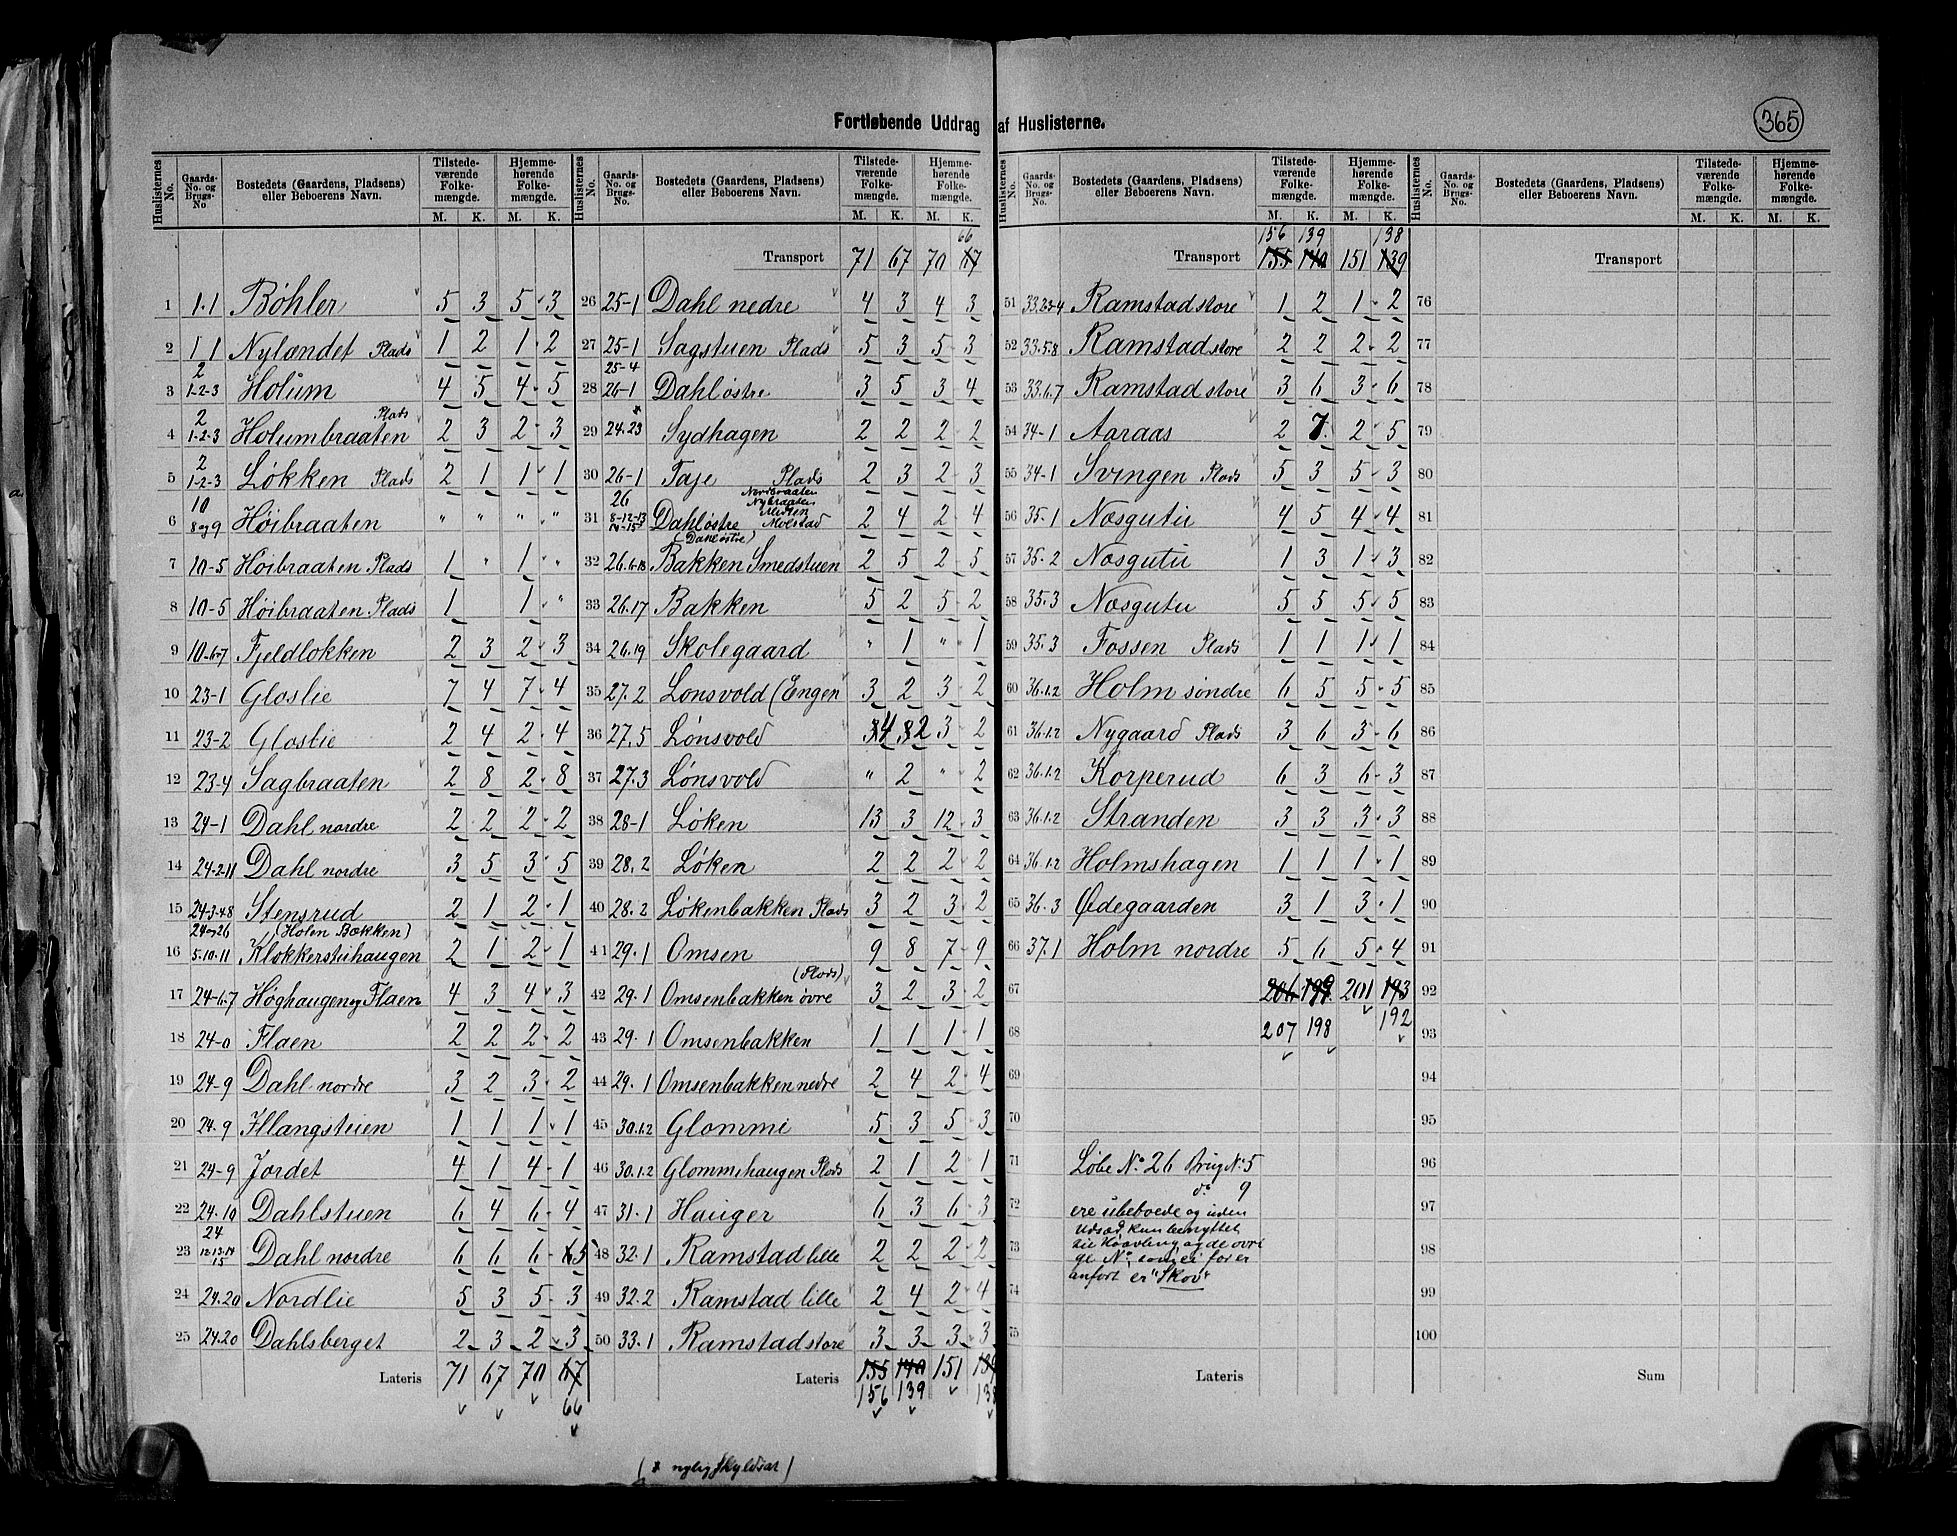 Fortløbende Uddrag af Huslisterne.
365
Huslisternes No. | Gaards-No. og Brugs-No. | Bostedets (Gaardens, Pladsens) eller Beboerens Navn. | Tilstedeværende Folkemængde. M. K. | Hjemmehørende Folkemængde. M. K.
1 1.1 Bøhler 5 3 5 3
2 1 1 Nylændet Plads 1 2 1 2
3 2 1-2-3 Holum 4 5 4 5
4 2 1-2-3 Holumbraaten Plads 2 3 2 3
5 2 1-2-3 Løkken Plads 2 1 1 1
6 10 8 og 9 Høibraaten " " " "
7 10-5 Høibraaten Plads 1 " 1 "
8 10-5 Høibraaten Plads 1 1 "
9 10-6-7 Fjeldløkken 2 3 2 3
10 23-1 Gloslie 7 4 7 4
11 23-2 Gloslie 2 4 2 4
12 23-4 Sagbraaten 2 8 2 8
13 24-1 Dahl nordre 2 2 2 2
14 24-2-11 Dahl nordre 3 5 3 5
15 24-3-48 Stensrud 2 1 2 1
16 24 og 26 5.10.11 (Holm Bækken) Klokkerstuhaugen 2 1 2 1
17 24-6-7 Høghaugen og Flaen 4 3 4 3
18 24-0 Flaen 2 2 2 2
19 24-9 Dahl nordre 3 2 3 2
20 24.9 Illangstuen 1 1 1 1
21 24-9 Jordet 4 1 4 1
22 24.10 Dahlstuen 6 4 6 4
23 24 12-13-14 15 Dahl nordre 6 6 6 6 5
24 24.20 Nordlie 5 3 5 3
25 24.20 Dahlsberget 2 3 2 3
Lateris 71 67 70 67 66
Transport 71 67 70 67 66
26 25-1 Dahl nedre 4 3 4 3
27 25-1 Sagstuen Plads 5 3 5 3
28 25-4 26-1 Dahl østre 3 5 3 4
29 24.23 * Sydhagen 2 2 2 2
30 26-1 Taje Plads 2 3 2 3
31 26 8-12-13 14-15 Dahl østre Nordbraaten Nybraaten Molstad 2 4 2 4
32 26.6-18 (Dahl østre) Bakken Smedstuen 2 5 2 5
33 26.17 Bakken 5 2 5 2
34 26.19 Skolegaard " 1 " 1
35 27.2 Lønsvold (Engen 3 2 3 2
36 27.5 Lønsvold 3 4 3 2 3 2
37 27.3 Lønsvold " 2 " 2
38 28-1 Løken 13 3 12 3
39 28.2 Løken 2 2 2 2
40 28.2 Løkenbakken Plads 3 2 3 2
41 29.1 Omsen 9 8 7 9
42 29.1 Omsenbakken øvre (Plads) 3 2 3 2
43 29.1 Omsenbakken 1 1 1 1
44 29.1 Omsenbakken nedre 2 4 2 4
45 30.1.2 Glommi 5 3 5 3
46 30.1.2 Glommihaugen Plads 2 1 2 1
47 31.1 Hauger 6 3 6 3
48 32.1 Ramstad lille 2 2 2 2
49 32.2 Ramstad lille 2 4 2 4
50 33.1 Ramstad store 3 3 3 3
Lateris 155 140 151 139
156 139 138
( * nylig skyldsat )
Huslisternes No. | Gaards-No. og Brugs-No. | Bostedets (Gaardens, Pladsens) eller Beboerens Navn. | Tilstedeværende Folkemængde. M. K. | Hjemmehørende Folkemængde. M. K.
156 139 138
Transport 155 140 151 139
51 33.2.3-4 Ramstad store 1 2 1 2
52 33.5.8 Ramstad store 2 2 2 2
53 33.6.7 Ramstad store 3 6 3 6
54 34-1 Aaraas 2 7 2 5
55 34.1 Svingen Plads 5 3 5 3
56 35.1 Næsgutu 4 5 4 4
57 35.2 Næsgutu 1 3 1 3
58 35.3 Næsgutu 5 5 5 5
59 35.3 Fossen Plads 1 1 1 1
60 36.1.2 Holm søndre 6 5 5 5
61 36.1.2 Nygaard Plads 3 6 3 6
62 36.1.2 Korperud 6 3 6 3
63 36.1.2 Stranden 3 3 3 3
64 36.1.2 Holmshagen 1 1 1 1
65 36.3 Ødegaarden 3 1 3 1
66 37.1 Holm nordre 5 6 5 4
67 206 199 201 193
68 207 198 192
69
70
71 Løbe No. 26 Brug No. 5
do 9
72 ere ubeboede og uden
Udsæd, kun benyttet
73 til Havling, og de øvri
ge No., som ei før er
74 anført er "Skov"
75
Lateris
Huslisternes No. | Gaards-No. og Brugs-No. | Bostedets (Gaardens, Pladsens) eller Beboerens Navn. | Tilstedeværende Folkemængde. M. K. | Hjemmehørende Folkemængde. M. K.
Transport
76
77
78
79
80
81
82
83
84
85
86
87
88
89
90
91
92
93
94
95
96
97
98
99
100
Sum